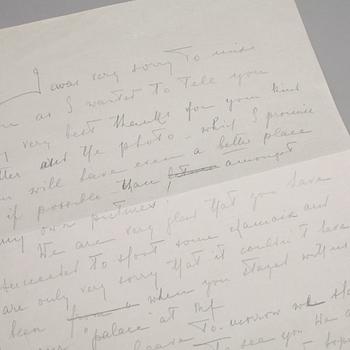 I was very sorry to miss
as I wanted to tell you
very best thanks for your kind
and the photo - which I promise
will have even a better place
if possible than amongst
my own pictures!
We are very glad that you have
succeeded to shoot some chamois and
are only very sorry that it couldn't have
been from a when you stayed with us
"palace" at the
leave to-morrow
to see you